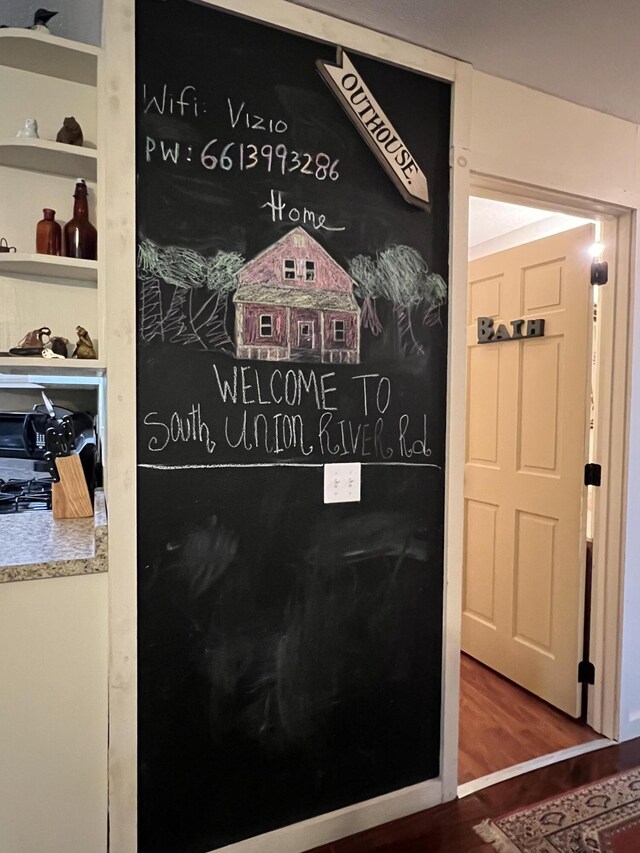 Wifi: Vizio
PW: 6613993286
OUTHOUSE.
Home
WELCOME TO
South UNION RIVER Rd
BATH